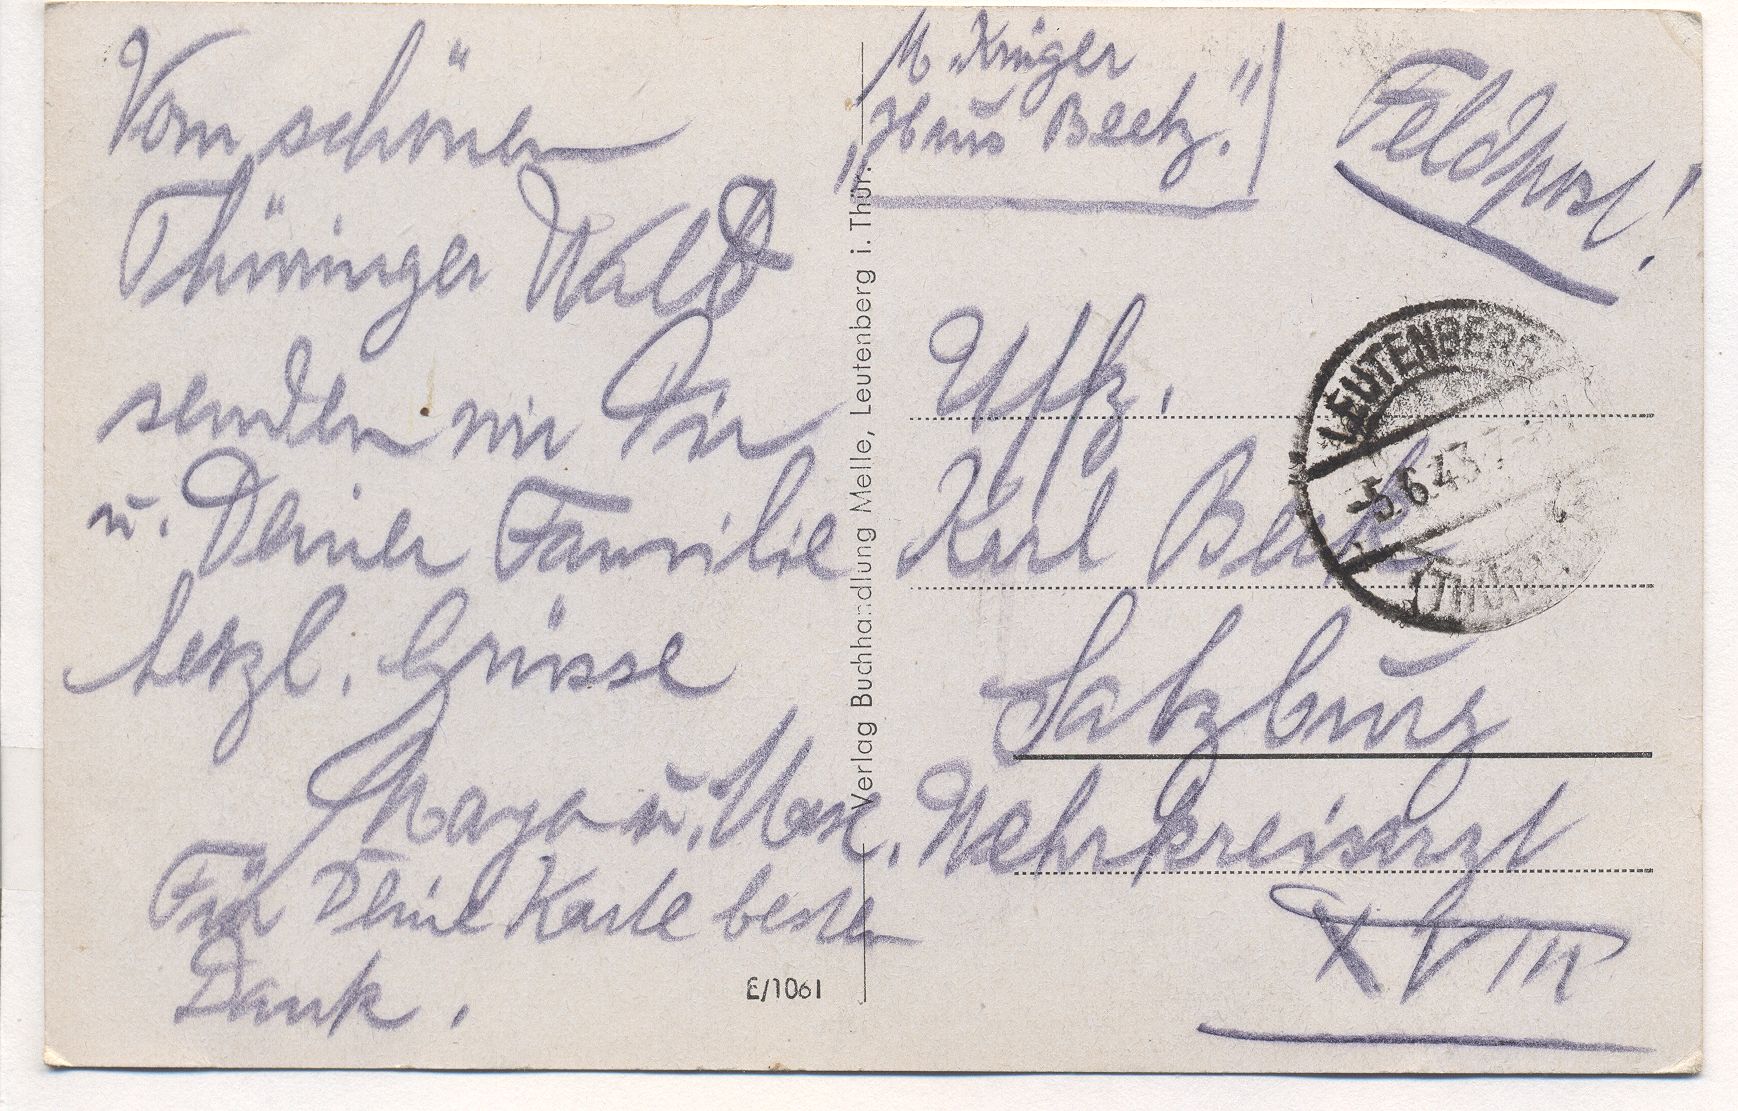 Vom schönen
Thüringer Wald
senden wir Dir
u. Deiner Familie
herzl. Grüsse
u. Max.
Für Deine Karte besten
Dank.
E/1061
Verlag Buchhandlung Melle, Leutenberg i. Thür.
M. Krüger
„Haus Beetz."
Feldpost!
LEUTENBERG
-5.6.43.7-
(THÜR
Uffz.
Karl Beck
Salzburg
Wehrkreisarzt
XVIII